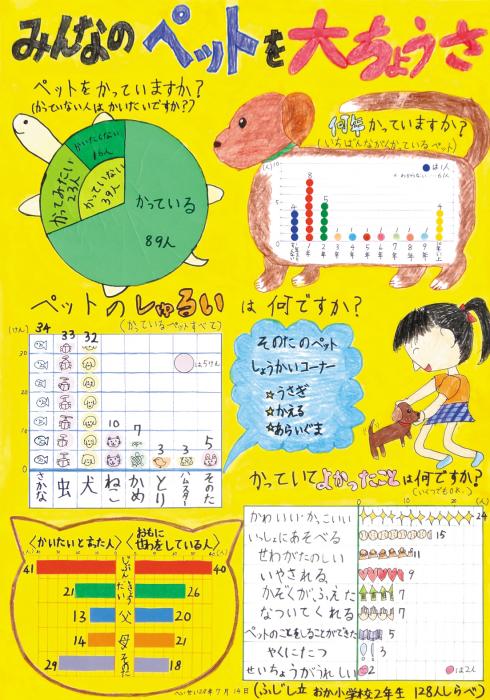 みんなのペットを大ちょうさ
ペットをかっていますか?
(かっていない人はかいたいですか?)
かいたくない
16人
かってみたい
23人
かっていない
39人
かっている
89人
何年かっていますか?
(いちばんながくかっているペット)
(人)
10
5
0
は1人
4
8
5
1
1
1
1
1
1
1
4
1年
2年
3年
4年
5年
6年
7年
8年
9年
ペットのしゅるいは何ですか?
(かっているペットすべて)
(けん)
34
33
32
10
7
3
3
5
30
20
10
0
は5けん
さかな
虫
犬
ねこ
かめ
とり
ハムスター
そのた
そのたのペット
しょうかいコーナー
☆うさぎ
☆かえる
☆あらいぐま
かっていてよかったことは何ですか?
(いくつでもOK。)
0
10
20
かわいい・かっこいい
24
いっしょにあそべる
15
せわがたのしい
11
いやされる
9
かぞくがふえた
7
なついてくれる
7
ペットのことをしることができた
5
やくにたつ
3
せいちょうがうれしい
2
は2人
〈かいたいと言った人〉
〈おもにせわをしている人〉
41
じぶん
40
21
きょうだい
26
13
父
20
14
母
21
29
そのた
18
へいせい28年7月14日
(ふじし立 おか小学校2年生 128人しらべ)